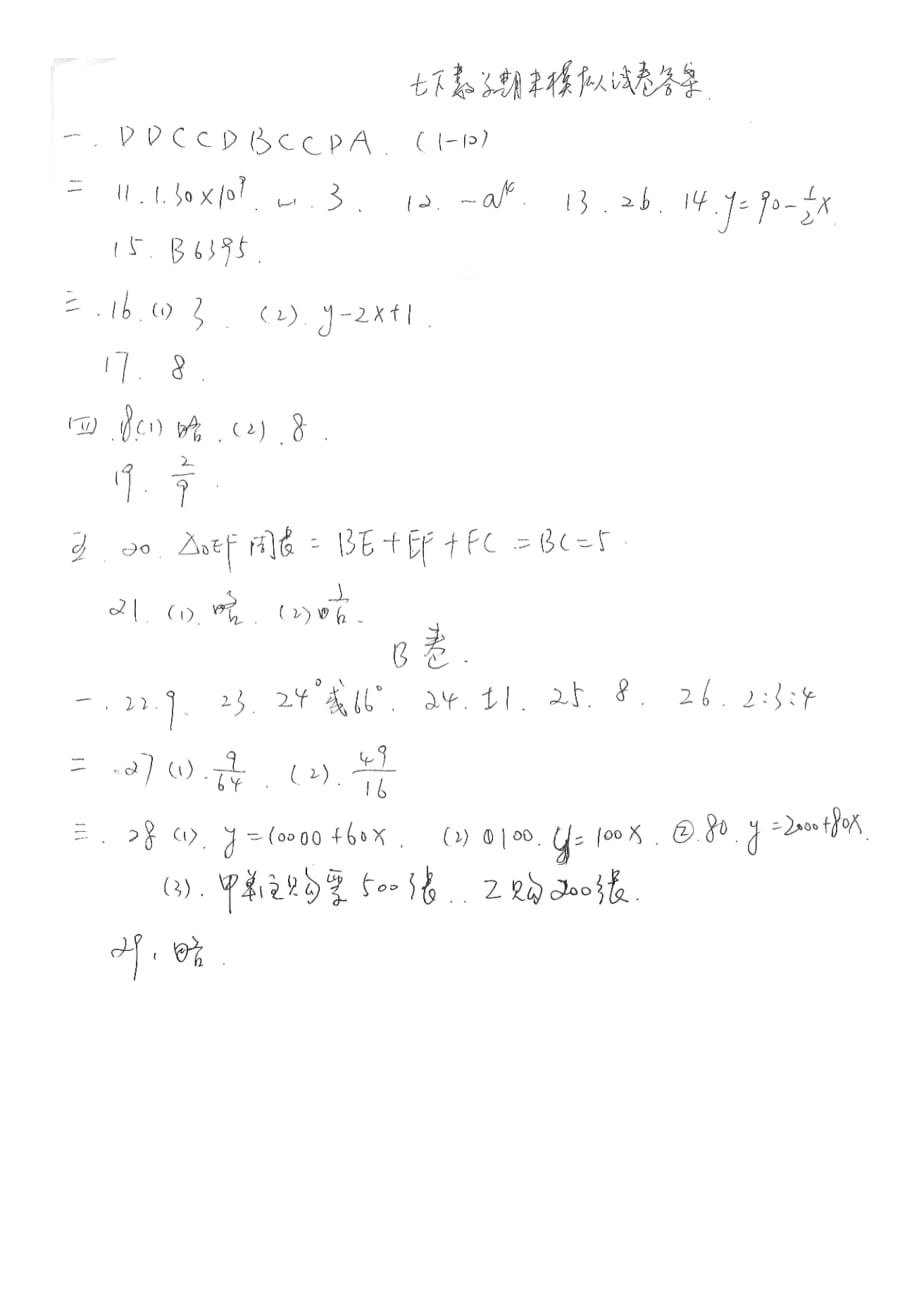 七下数学期末模拟试卷答案.
一. D D C C D B C C D A. (1-10)
二 11. 1.30×10⁹. 3. 12. -a¹⁶. 13. 26. 14. y=90-\frac{1}{2}x
15. B6395.
三. 16. (1) 3. (2). y-2x+1.
17. 8.
四. 18(1) 略. (2). 8.
19. \frac{2}{9}.
五. 20. △DEF周长 = BE+EF+FC = BC=5.
21. (1). 略. (2) 略.
B卷.
一. 22. 9. 23. 24°或66°. 24. ±1. 25. 8. 26. 2:3:4
二. 27 (1). \frac{9}{64}. (2). \frac{49}{16}
三. 28 (1). y=10000+60x. (2) ①100. y=100x. ②.80. y=2000+80x.
(3). 甲单位购票500张.. 乙购200张.
29. 略.